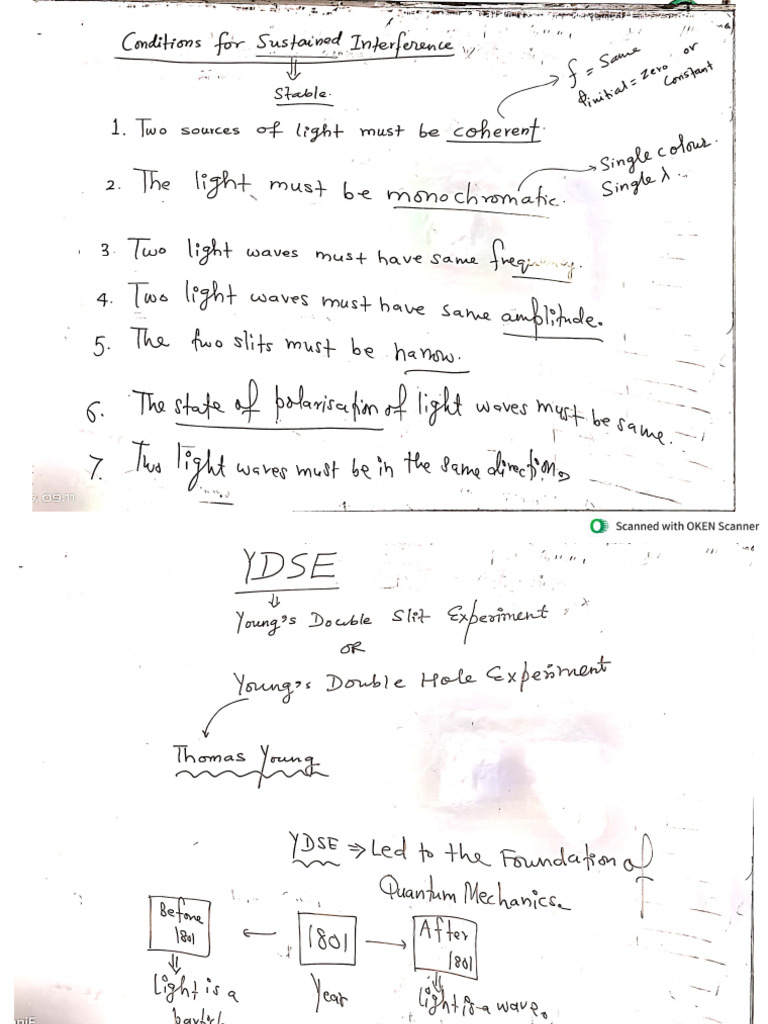 Conditions for Sustained Interference
Stable.
f = Same
φinitial = Zero or
Constant
1. Two sources of light must be coherent.
2. The light must be monochromatic.
Single colour.
Single λ
3. Two light waves must have same frequency.
4. Two light waves must have same amplitude.
5. The two slits must be narrow.
6. The state of polarisation of light waves must be same.
7. Two light waves must be in the same direction.
09:11
Scanned with OKEN Scanner
YDSE
Young's Double Slit Experiment
OR
Young's Double Hole Experiment
Thomas Young
YDSE ⇒ Led to the Foundation of
Quantum Mechanics.
Before
1801
← 1801 →
After
1801
Light is a
Year
Light is a wave.